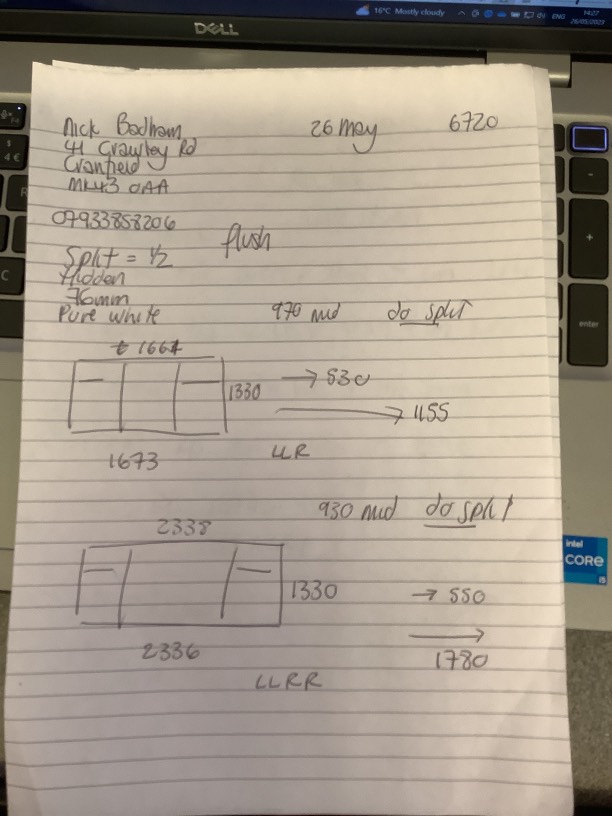 16°C Mostly cloudy ENG 14:27
26/05/2023
DELL
Nick Badham 26 may 6720
41 Crawley Rd
Cranfield
MK43 0AA
07933858206
flush
Split = 1/2
Hidden
76mm
Pure white 970 mid do split
1664
1330 → 530
→ 1155
1673 LLR
930 mid do split
2338
1330 → 550
→
1780
2336
LLRR
enter
intel
CORE
i5